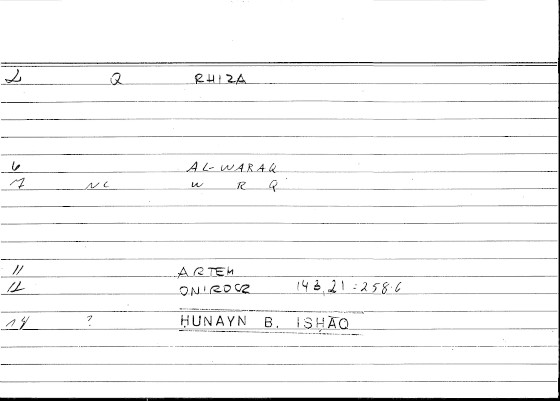 2 Q RHIZA
6 AL-WARAQ
7 NC W R Q
11 ARTEM
12 ONIROCR 143,21 = 258.6
14 ? HUNAYN B. ISHAQ